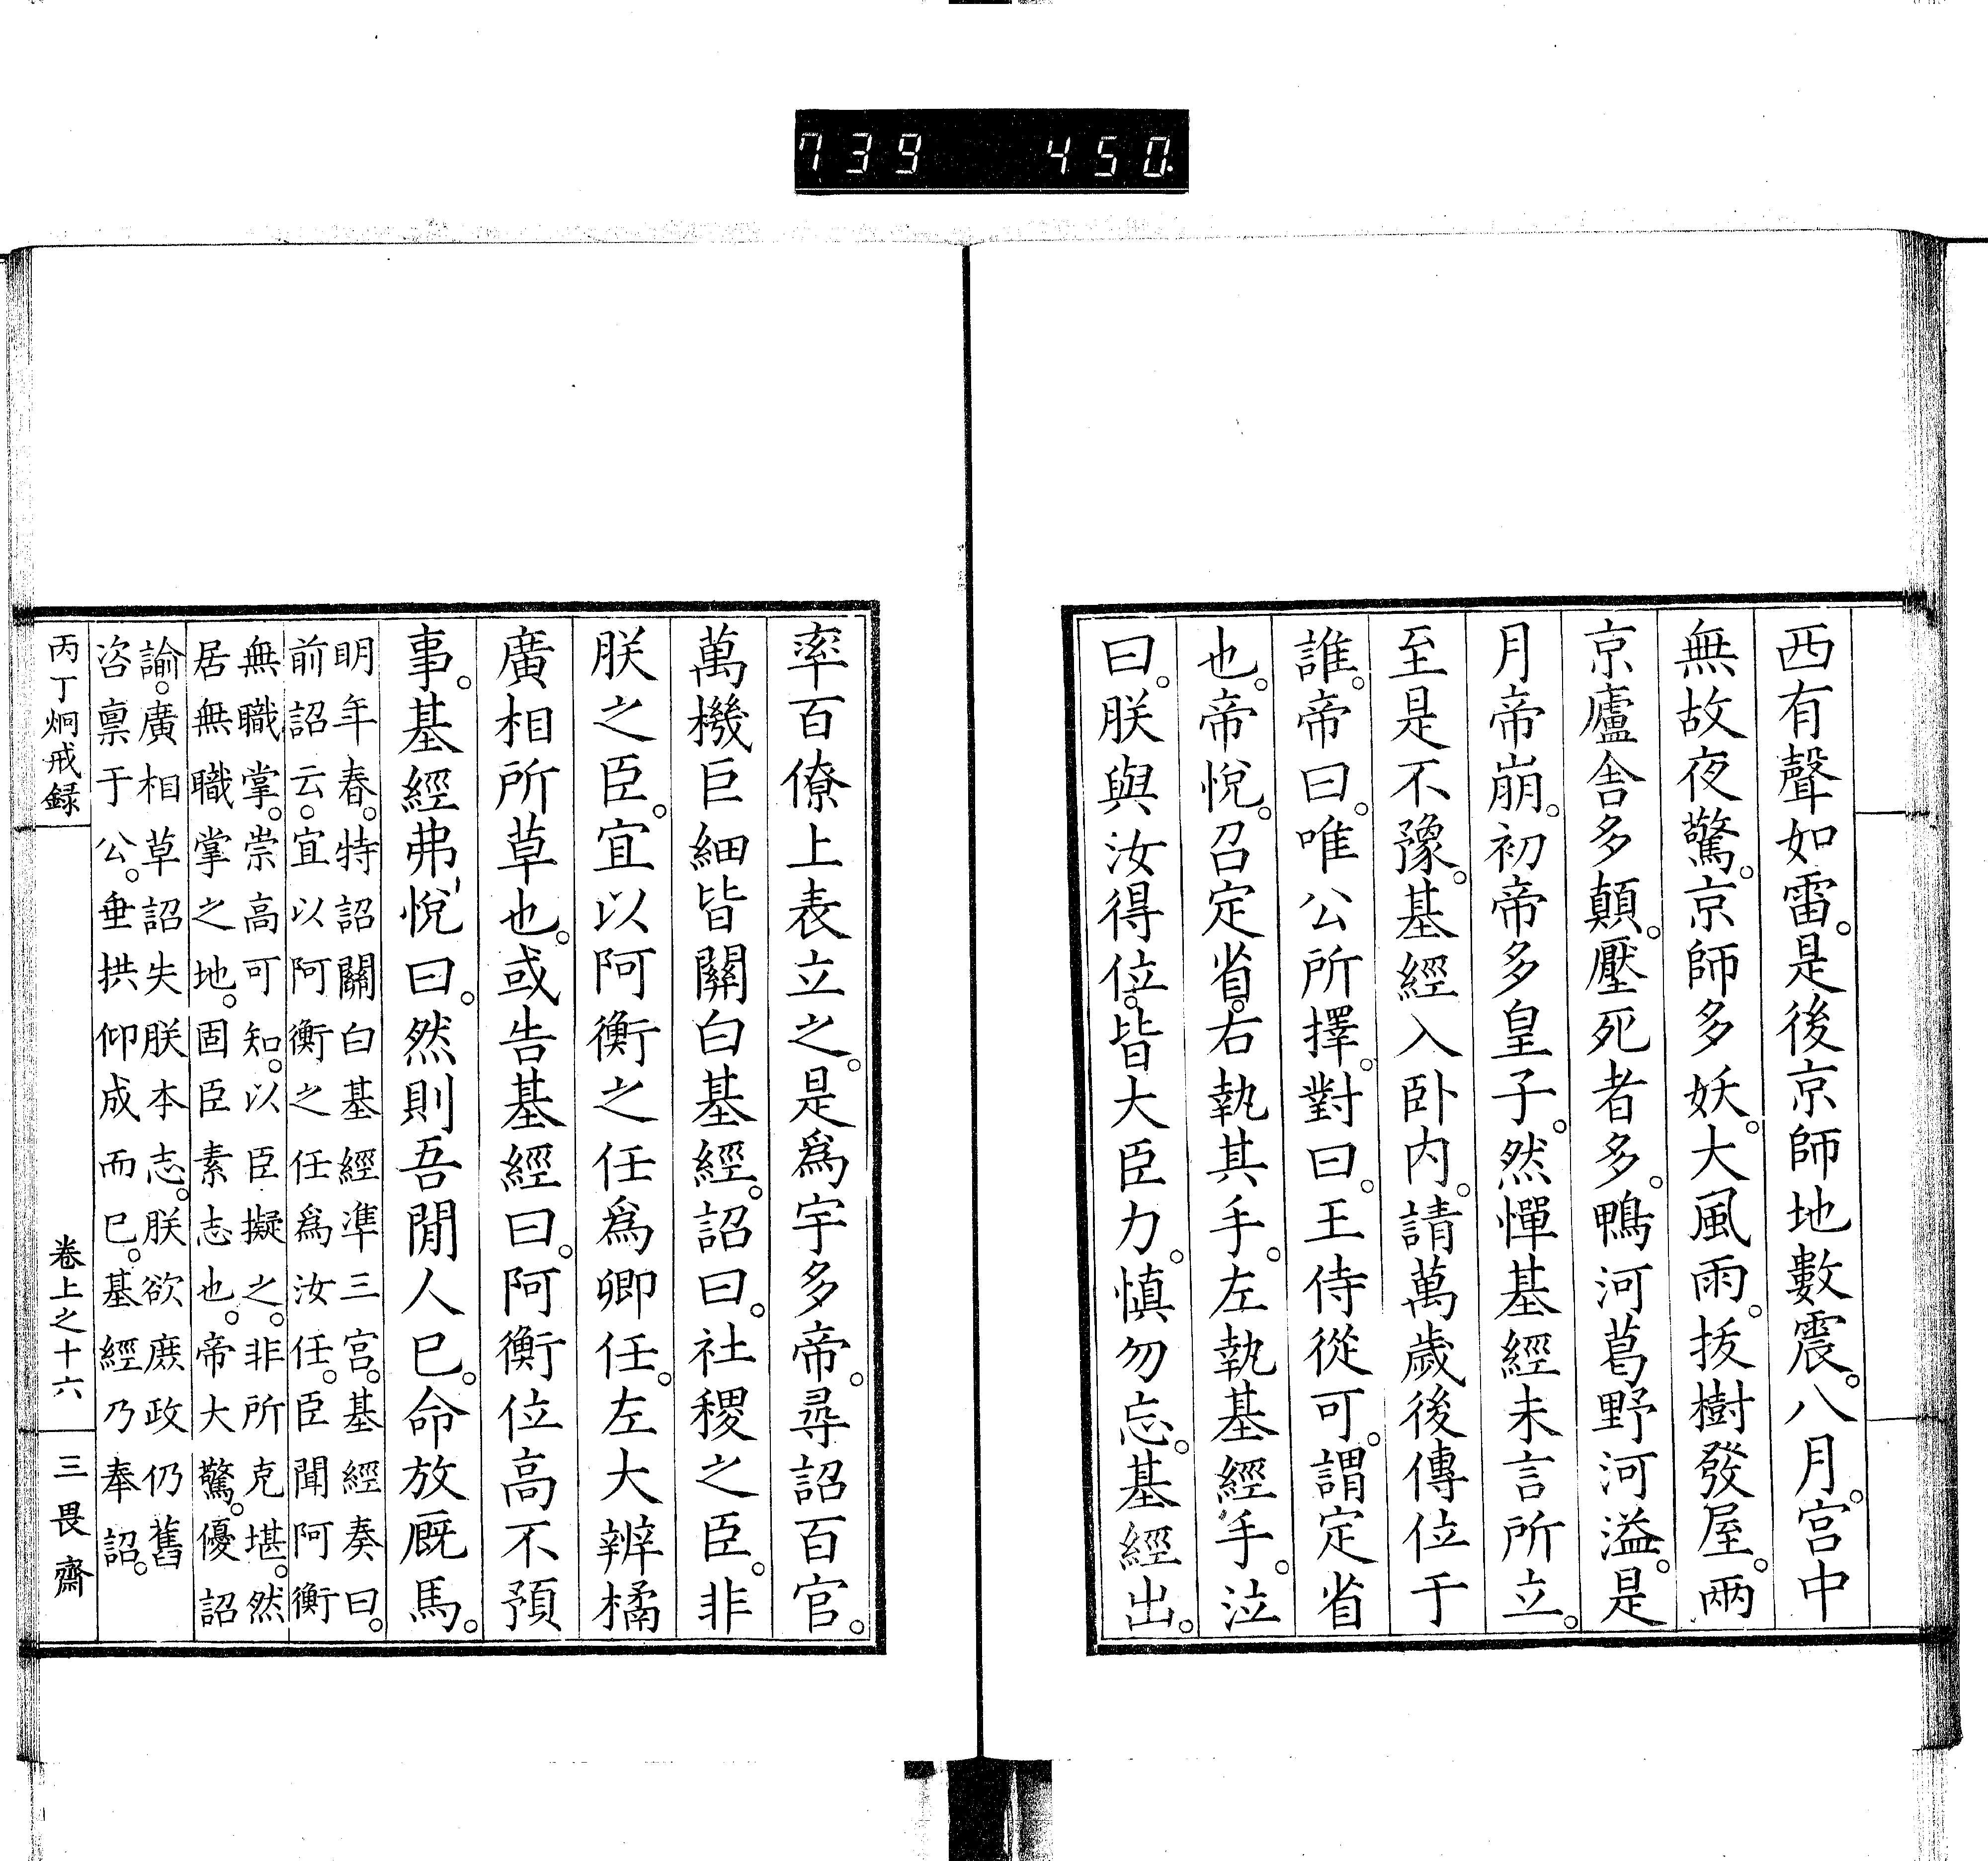 739 450
西有聲如雷。是後京師地數震。八月。宮中
無故夜驚。京師多妖。大風雨。拔樹發屋。兩
京廬舍多顛。壓死者多。鴨河葛野河溢。是
月帝崩。初帝多皇子。然憚基經未言所立。
至是不豫。基經入臥内。請萬歲後傳位于
誰。帝曰。唯公所擇。對曰。王侍從可。謂定省
也。帝悅。召定省。右執其手。左執基經手。泣
曰。朕與汝得位。皆大臣力。慎勿忘。基經出。
率百僚上表立之。是爲宇多帝。尋詔百官。
萬機巨細皆關白基經。詔曰。社稷之臣。非
朕之臣。宜以阿衡之任爲卿任。左大辨橘
廣相所草也。或告基經曰。阿衡位高不預
事。基經弗悅曰。然則吾閒人已。命放厩馬。
明年春。特詔關白基經準三宮。基經奏曰。
前詔云。宜以阿衡之任爲汝任。臣聞阿衡
無職掌。崇高可知。以臣擬之。非所克堪。然
居無職掌之地。固臣素志也。帝大驚。優詔
諭。廣相草詔失朕本志。朕欲庶政仍舊
咨稟于公。垂拱仰成而已。基經乃奉詔。
丙丁炯戒録 卷上之十六 三畏齋